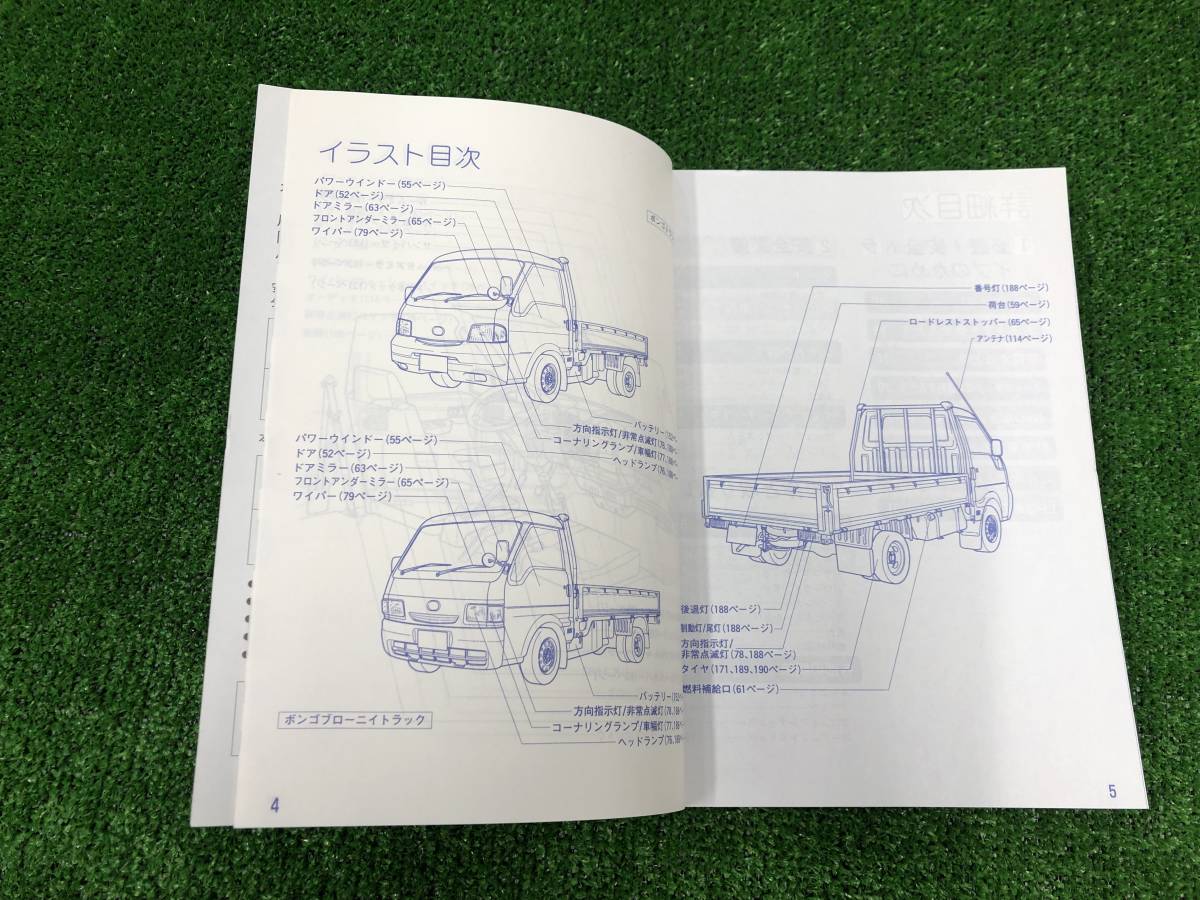 イラスト目次
パワーウインドー(55ページ)
ドア(52ページ)
ドアミラー(63ページ)
フロントアンダーミラー(65ページ)
ワイパー(79ページ)
ボンゴトラ
バッテリー(152ペー
方向指示灯/非常点滅灯(78、
コーナリングランプ/車幅灯(77、
ヘッドランプ(76、
パワーウインドー(55ページ)
ドア(52ページ)
ドアミラー(63ページ)
フロントアンダーミラー(65ページ)
ワイパー(79ページ)
バッテリー(152
方向指示灯/非常点滅灯(78、
コーナリングランプ/車幅灯(77、
ヘッドランプ(76、
ボンゴブローニイトラック
4
詳細目次
番号灯(188ページ)
荷台(59ページ)
ロードレストストッパー(65ページ)
アンテナ(114ページ)
後退灯(188ページ)
制動灯/尾灯(188ページ)
方向指示灯/
非常点滅灯(78、188ページ)
タイヤ(171、189、190ページ)
燃料補給口(61ページ)
5